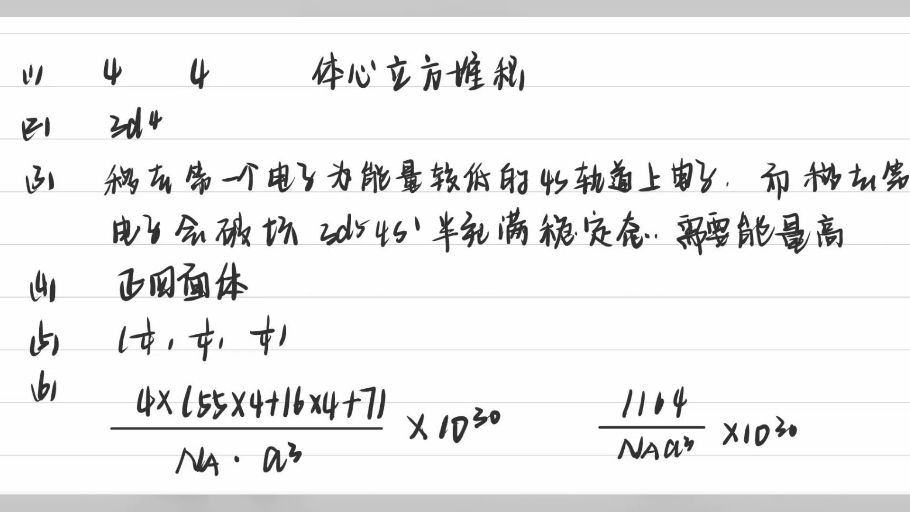 (1) 4 4 体心立方堆积
(2) 3d4
(3) 移去第一个电子为能量较低的4s轨道上电子. 而移去第
电子会破坏 3d5 4s1 半充满稳定态.. 需要能量高
(4) 正四面体
(5) (1/4, 1/4, 1/4)
(6) 4×(55×4+16×4+7)/NA·a3 ×10^30 1164/NAa3 ×10^30